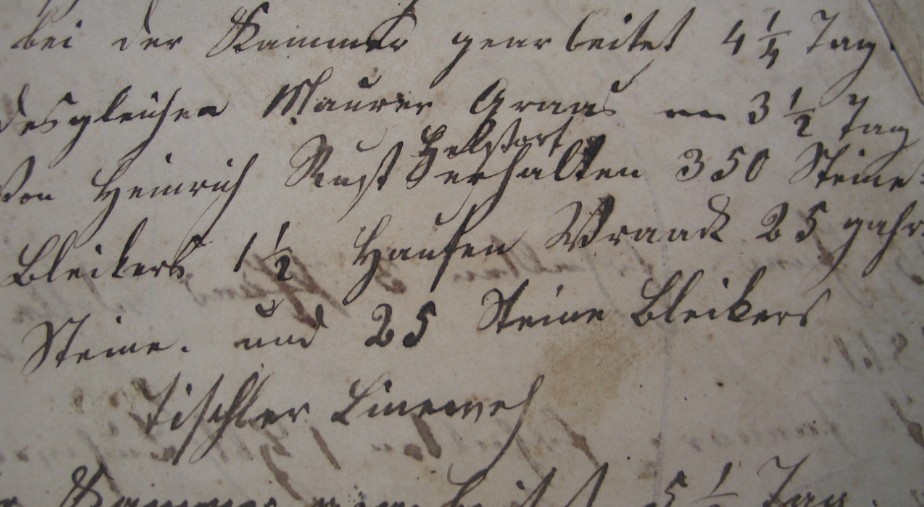 bei der Kammer gearbeitet 4 1/4 Tag.
desgleichen Maurer Graas 3 1/2 Tag
Von Heinrich Rust erhalten 350 Steine
Bleikers 1 1/2 Haufen Wraack 25 gahr
Steine. und 25 Steine Bleikers
Tischler Lineweh
Kammer gearbeitet 5 1/2 Tag.